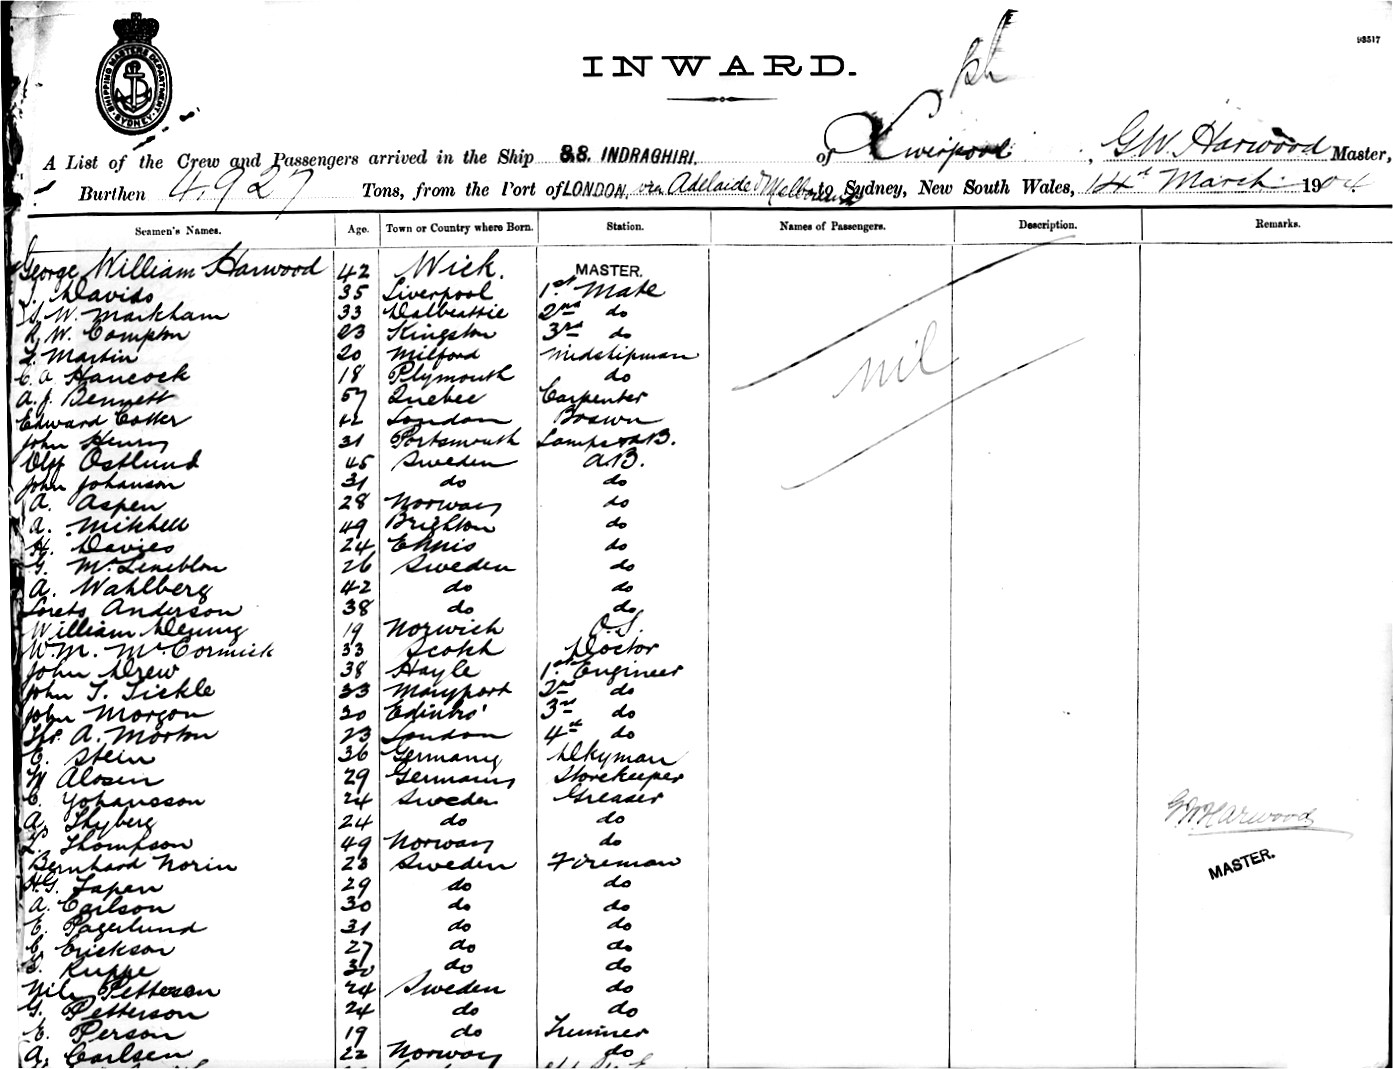 93517
SHIPPING MASTERS DEPARTMENT SYDNEY
INWARD.
A List of the Crew and Passengers arrived in the Ship S.S. INDRAGHIRI. of Liverpool, G.W. Harwood Master,
Burthen 4927 Tons, from the Port of LONDON, via Adelaide & Melbourne to Sydney, New South Wales, 14th March 1904
Seamen's Names. Age. Town or Country where Born. Station. Names of Passengers. Description. Remarks.
George William Harwood 42 Wick. MASTER.
Davids 35 Liverpool 1st Mate
W. Markham 33 Dalbeattie 2nd do
W. Compton 23 Kingston 3rd do
Martin 20 Milford Midshipman
nil
C. A. Hancock 18 Plymouth do
A. J. Bennett 57 Quebec Carpenter
Edward Cotter 42 London Boswn
John Henry 31 Portsmouth Lamps & A.B.
Olof Ostlund 45 Sweden A.B.
John Johanson 31 do do
A. Aspen 28 Norway do
A. Mitchell 49 Brighton do
H. Davies 24 Ennis do
G. 26 Sweden do
A. Wahlberg 42 do do
Anderson 38 do do
William 19 Norwich O.S.
W.M. McCormick 33 Scotch Doctor
John Drew 38 Hayle 1st Engineer
John T. Tickle 33 Maryport 2nd do
John Morgan 30 Edinbro' 3rd do
Thos. A. Morton 23 London 4th do
C. Stein 36 Germany Dkyman
W 29 Germany Storekeeper
C. Yohansson 24 Sweden Greaser
A. Thyberg 24 do do
G.W. Harwood
T. Thompson 49 Norway do
MASTER.
Bernhard Norin 23 Sweden Fireman
H.G. 29 do do
A. Carlson 30 do do
E. Pagerlund 31 do do
C. Erickson 27 do do
Kuppe 30 do do
Nils Petterson 24 Sweden do
G. Petterson 24 do do
E. Person 19 do Trimmer
A. Carlsen 22 Norway do